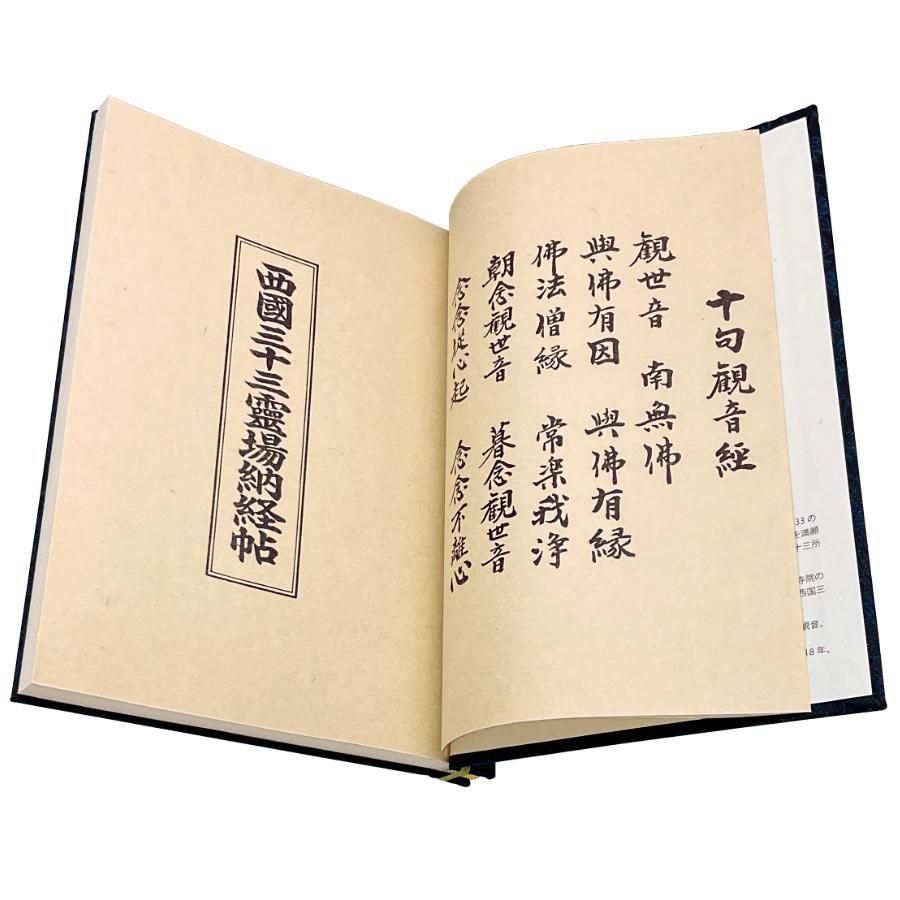 十句観音経
観世音　南無佛
與佛有因　與佛有縁
佛法僧縁　常楽我浄
朝念観世音　暮念観世音
念念従心起　念念不離心
西國三十三霊場納経帖
33の
を満願
十三所
寺院の
西国三
観音、
18年、